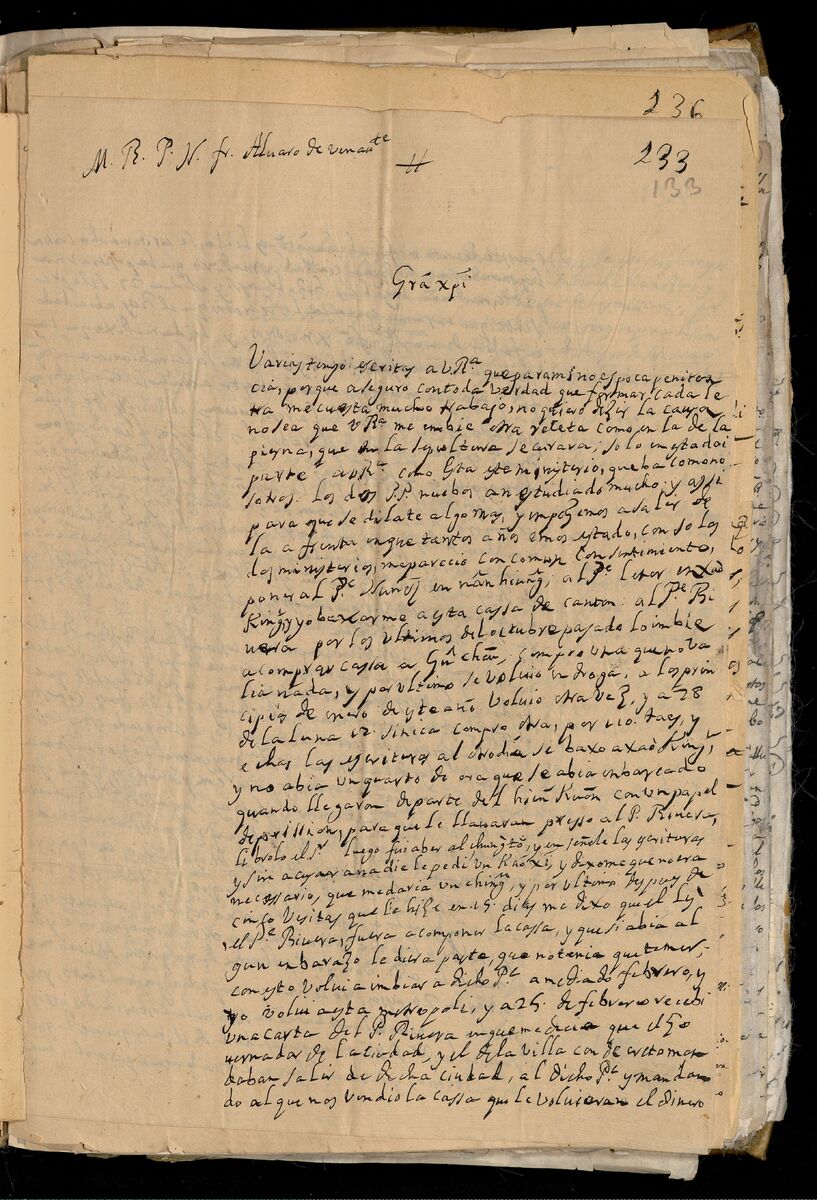 236
M. R. P. N. fr. Alvaro de venaute
233
133
Grã xp̃i
Varias tengo escritas a VRª que para mi no es poca peniten
cia, porque aseguro con toda verdad que formar cada le
tra me cuesta mucho trabajo, no quiero dezir la causa
no sea que VRª me embie otra receta como en la de la
pierna, que en la sepultura se curava; solo en esta doi
parte a VRª como esta este ministerio, que ba como no
sotros. los dos PP. nuebos an estudiado mucho, y assi
para que se dilate algo mas, y empezemos a salir de
la afrenta en que tantos años emos estado, con solos
dos ministerios, me parecio con comun consentimiento,
poner al Pe Nuñez en nân hiung; al Pe lener en xao
King, y yo baxarme a esta cassa de canton: al Pe Ri
vera por los ultimos del octubre pasado lo imbie
a comprar cassa a Gû chãu, compro una que no va
lia nada, y por ultimo se volvio en droga, a los prin
cipios de enero de este año volvio otra vez, y a 28
de la luna 12 sinica compro otra, por 110. taes, y
echas las escrituras al otro dia se baxo a xao King,
y no abia un quarto de ora que se abia enbarcado
quando llegaron de parte del hien Kuon con un papel
de prission, para que le llevaran presso al P. Rivera,
librolo el Sr. luego fui a ber al chung tõ, y enseñele las escrituras
y sin acusar a nadie le pedi un Kao xi, y dixome que no era
necessario, que me daria un ching, y por ultimo despues de
cinco visitas que le hize en 15 dias me dixo que el
el Pe Rivera, fuera a componer la cassa, y que si abia al
gun enbarazo le diera parte, que no tenia que temer;
con esto volvi a imbiar a dicho Pe a mediado febrero, y
yo volvi a esta metropoli, y a 25. de febrero recebi
una carta del P. Rivera en que me decia que el Go
vernador de la ciudad, y el de la villa con decreto man
daban salir de dicha ciudad, al dicho Pe y mandan
do al que nos vendio la cassa que le volvieran el dinero